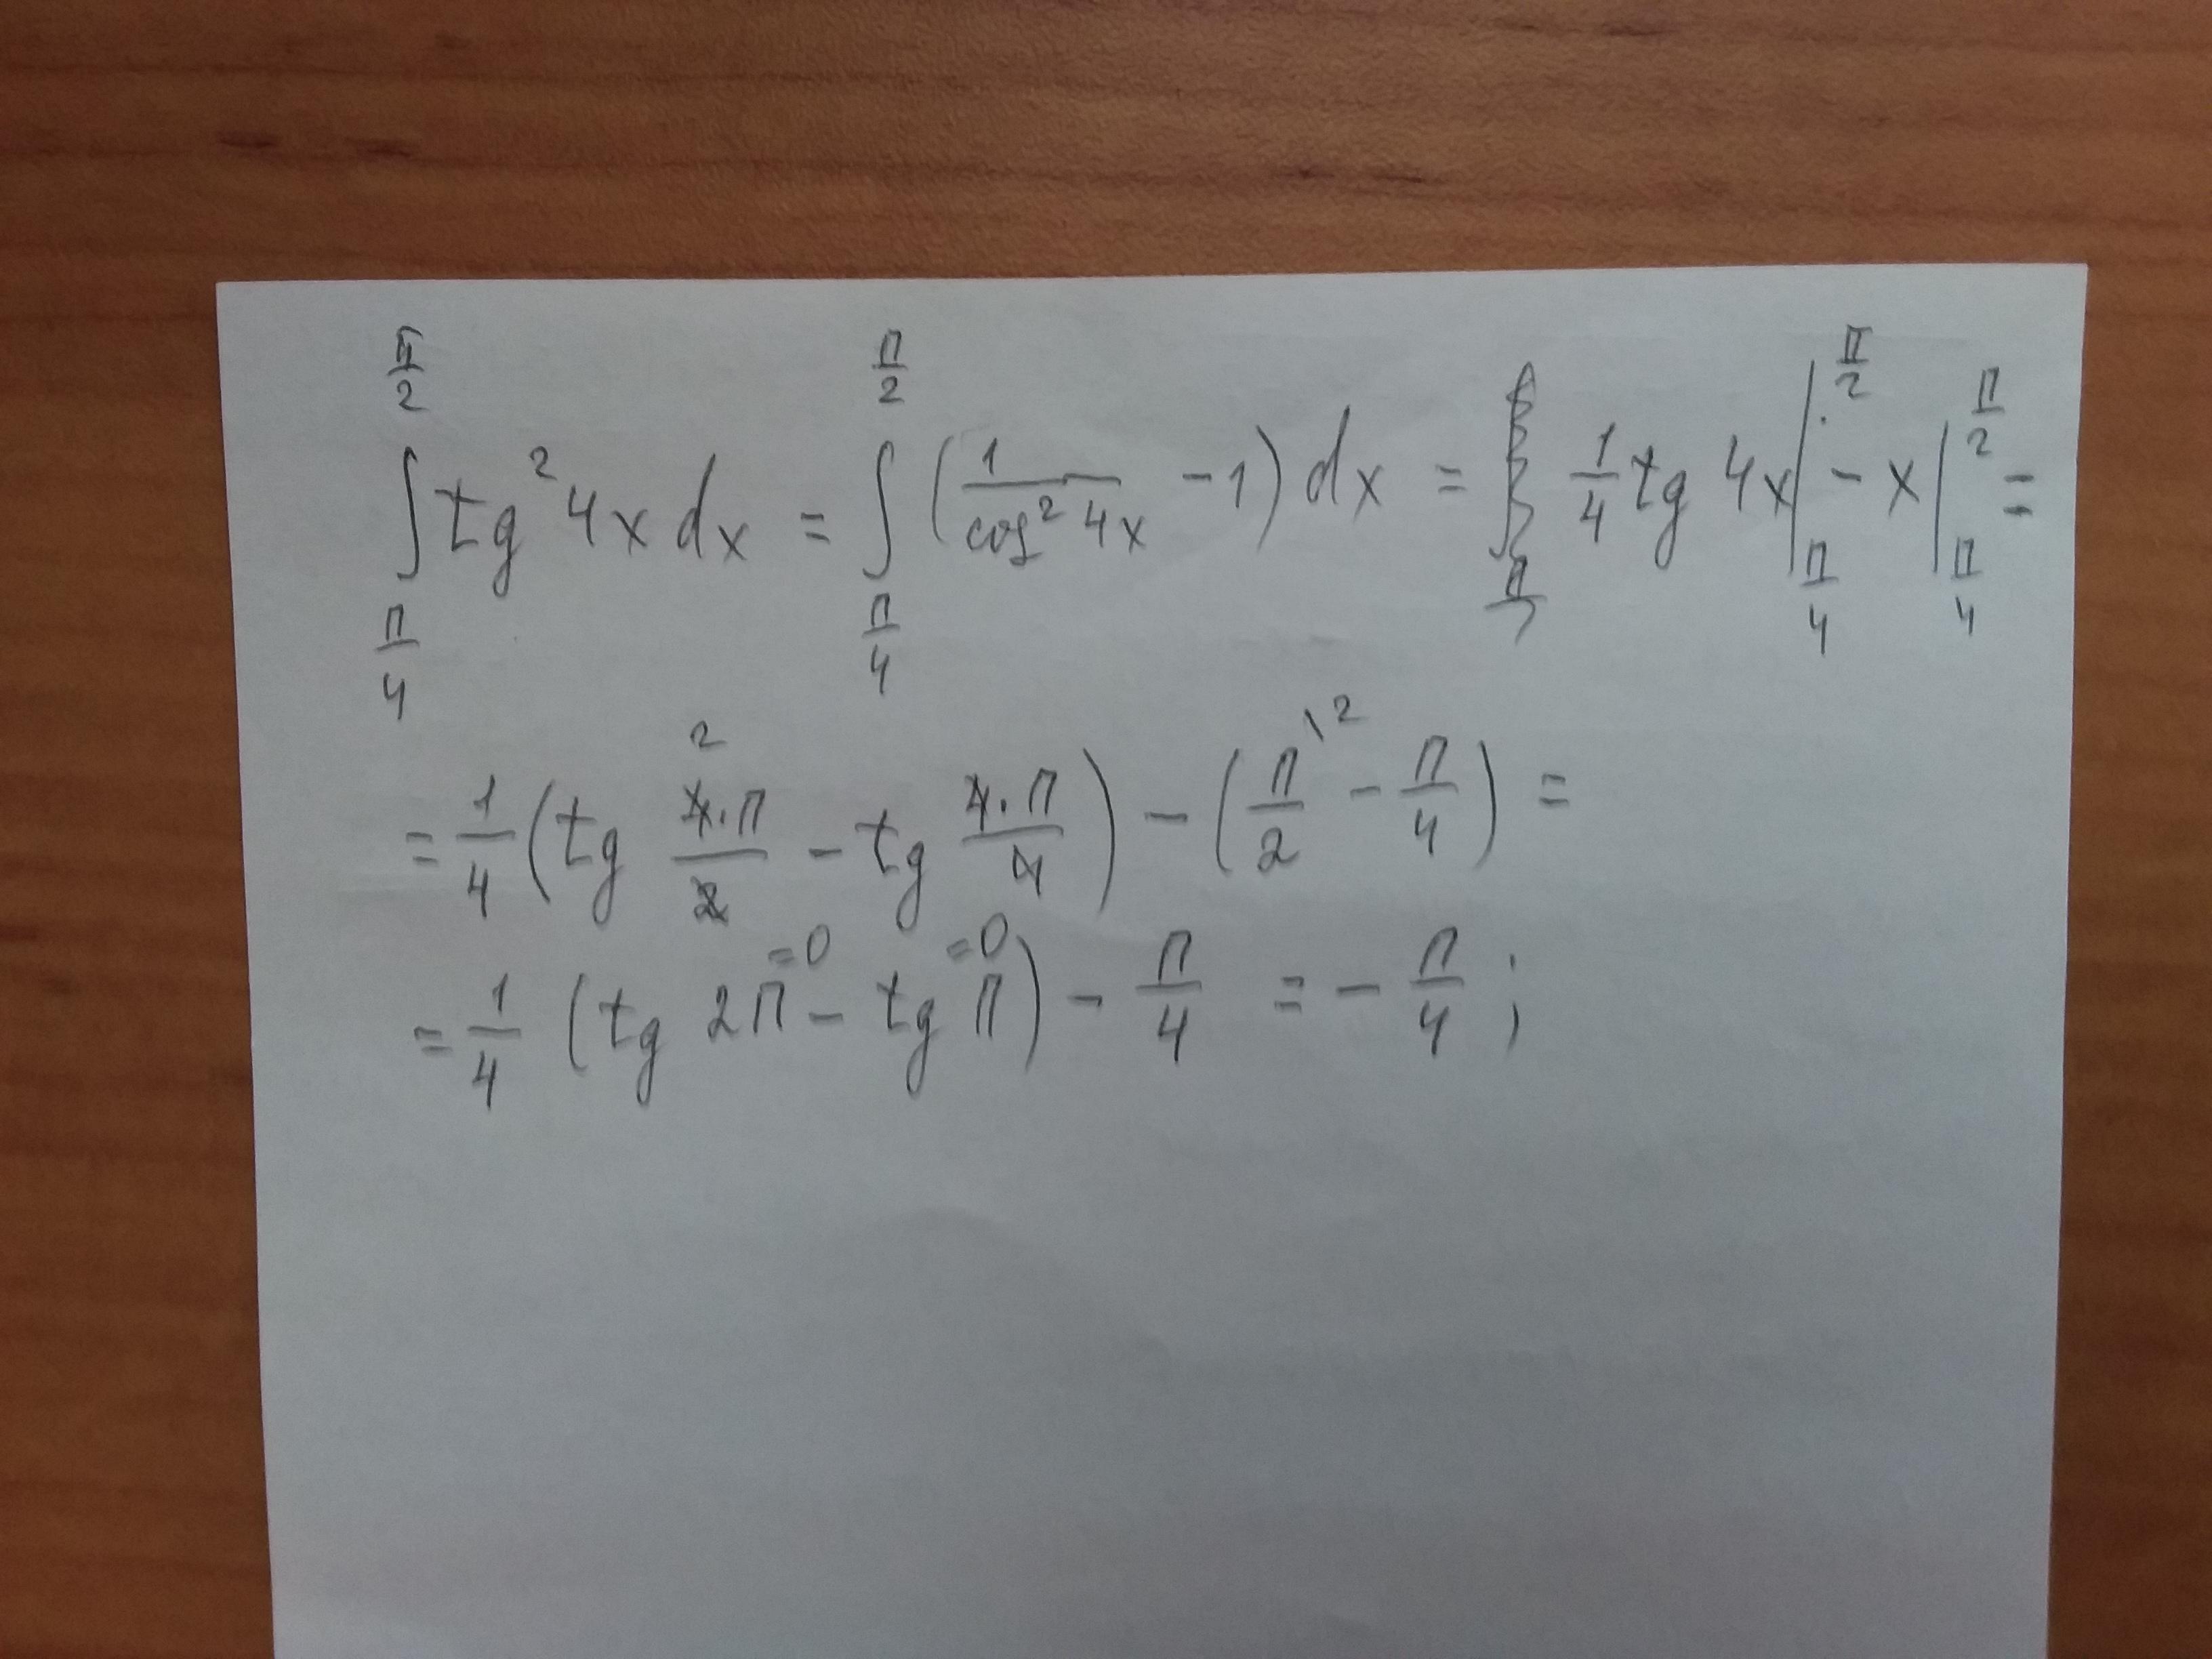 ∫_{π/4}^{π/2} tg² 4x dx = ∫_{π/4}^{π/2} (1/cos² 4x - 1) dx = 1/4 tg 4x |_{π/4}^{π/2} - x |_{π/4}^{π/2} =
= 1/4 (tg 4·π/2 - tg 4·π/4) - (π/2 \2 - π/4) =
= 1/4 (tg 2π =0 - tg π =0) - π/4 = - π/4 ;